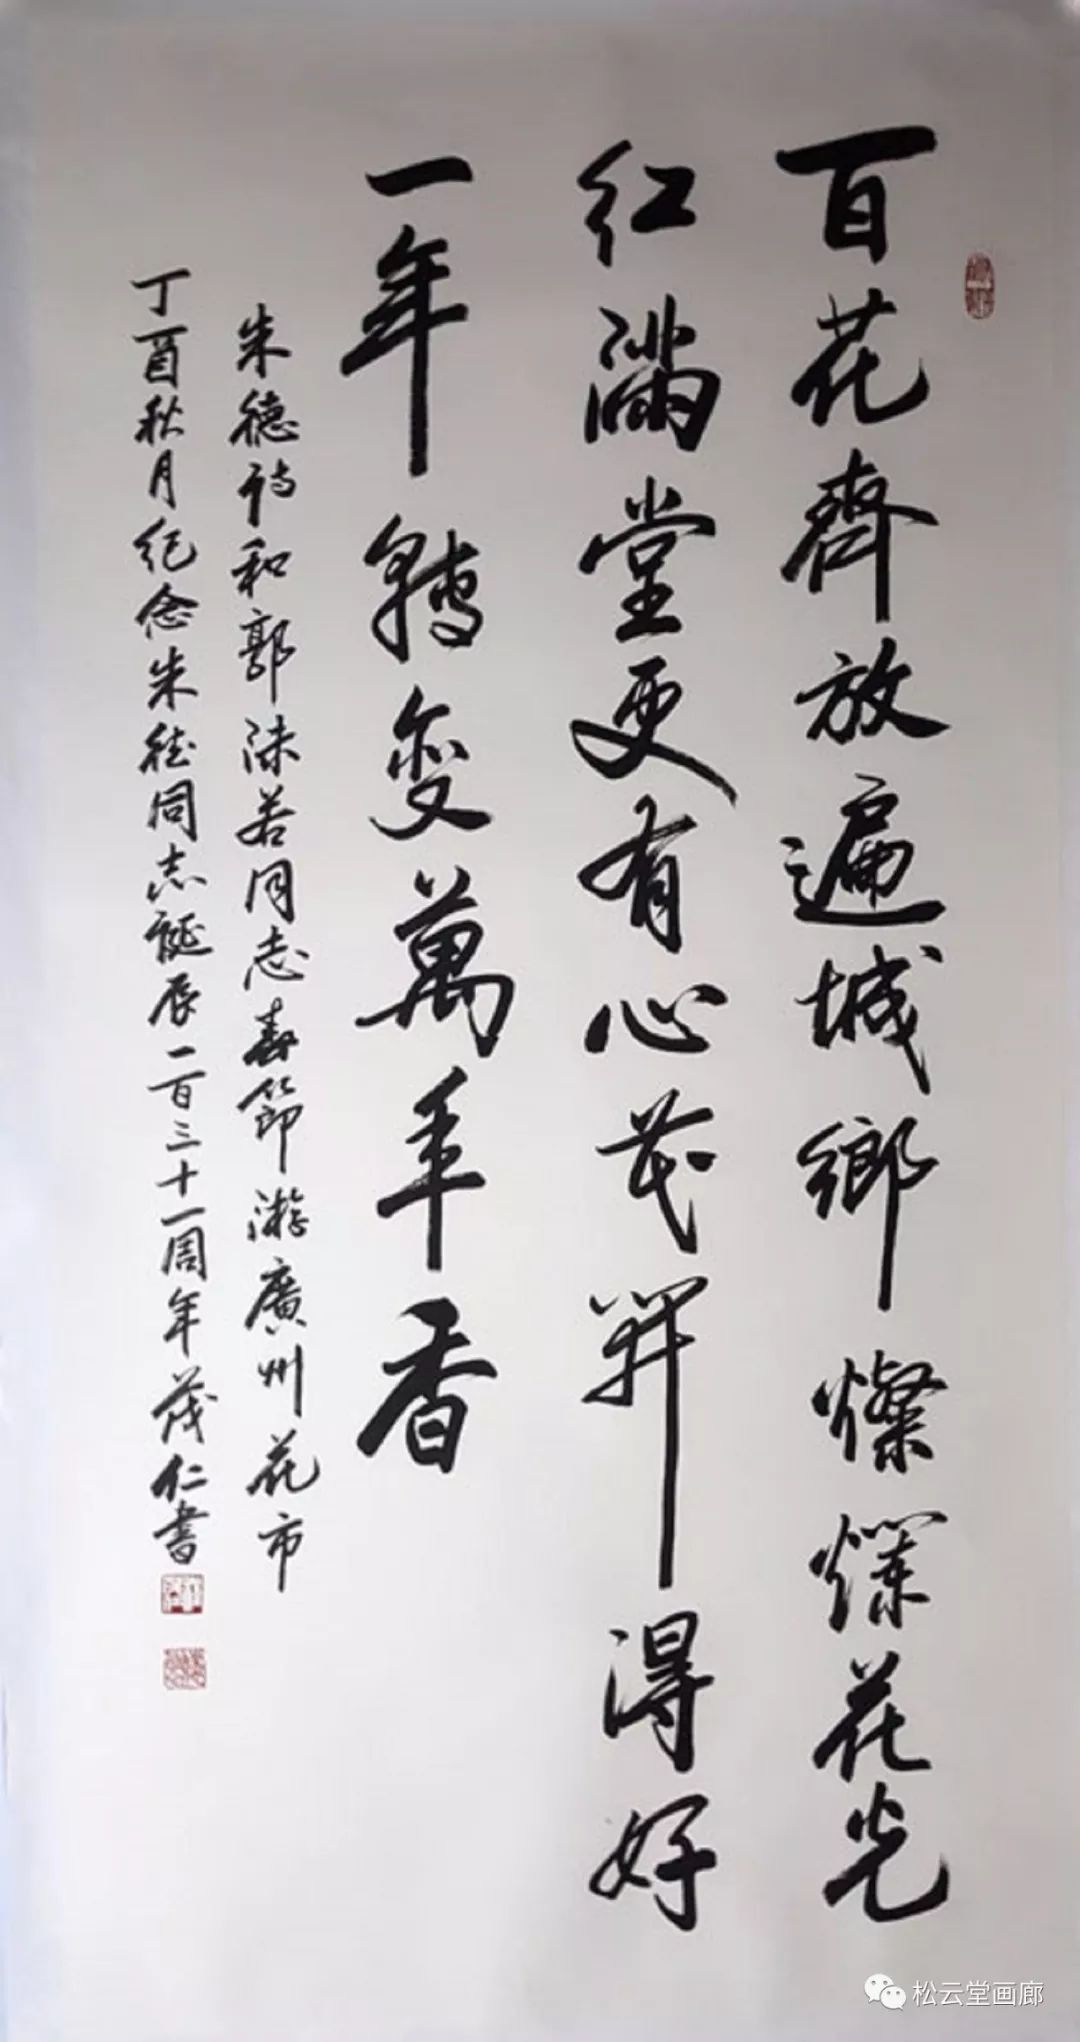 百花齊放遍城鄉燦爛花光
红滿堂更有心花開得好
一年轉變萬年香
朱德詩和郭沫若同志春節游廣州花市
丁酉秋月纪念朱德同志誕辰一百三十一周年茂仁書
松云堂画廊